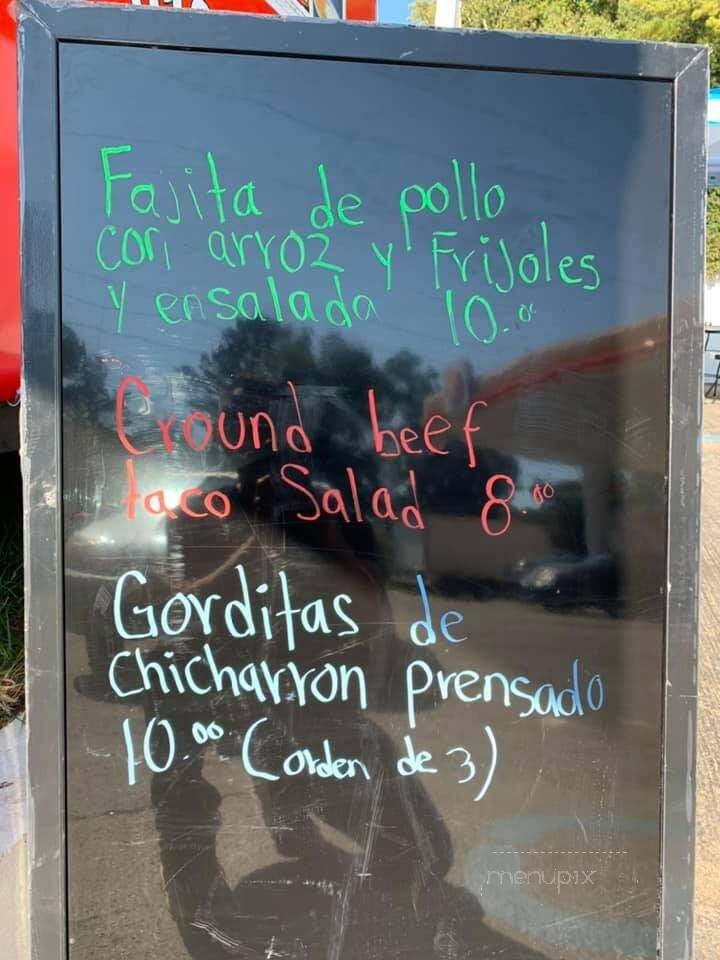 Fajita de pollo
con arroz y Frijoles
y ensalada 10.00
Ground beef
taco Salad 8.00
Gorditas de
chicharron prensado
10.00 (orden de 3)
menupix